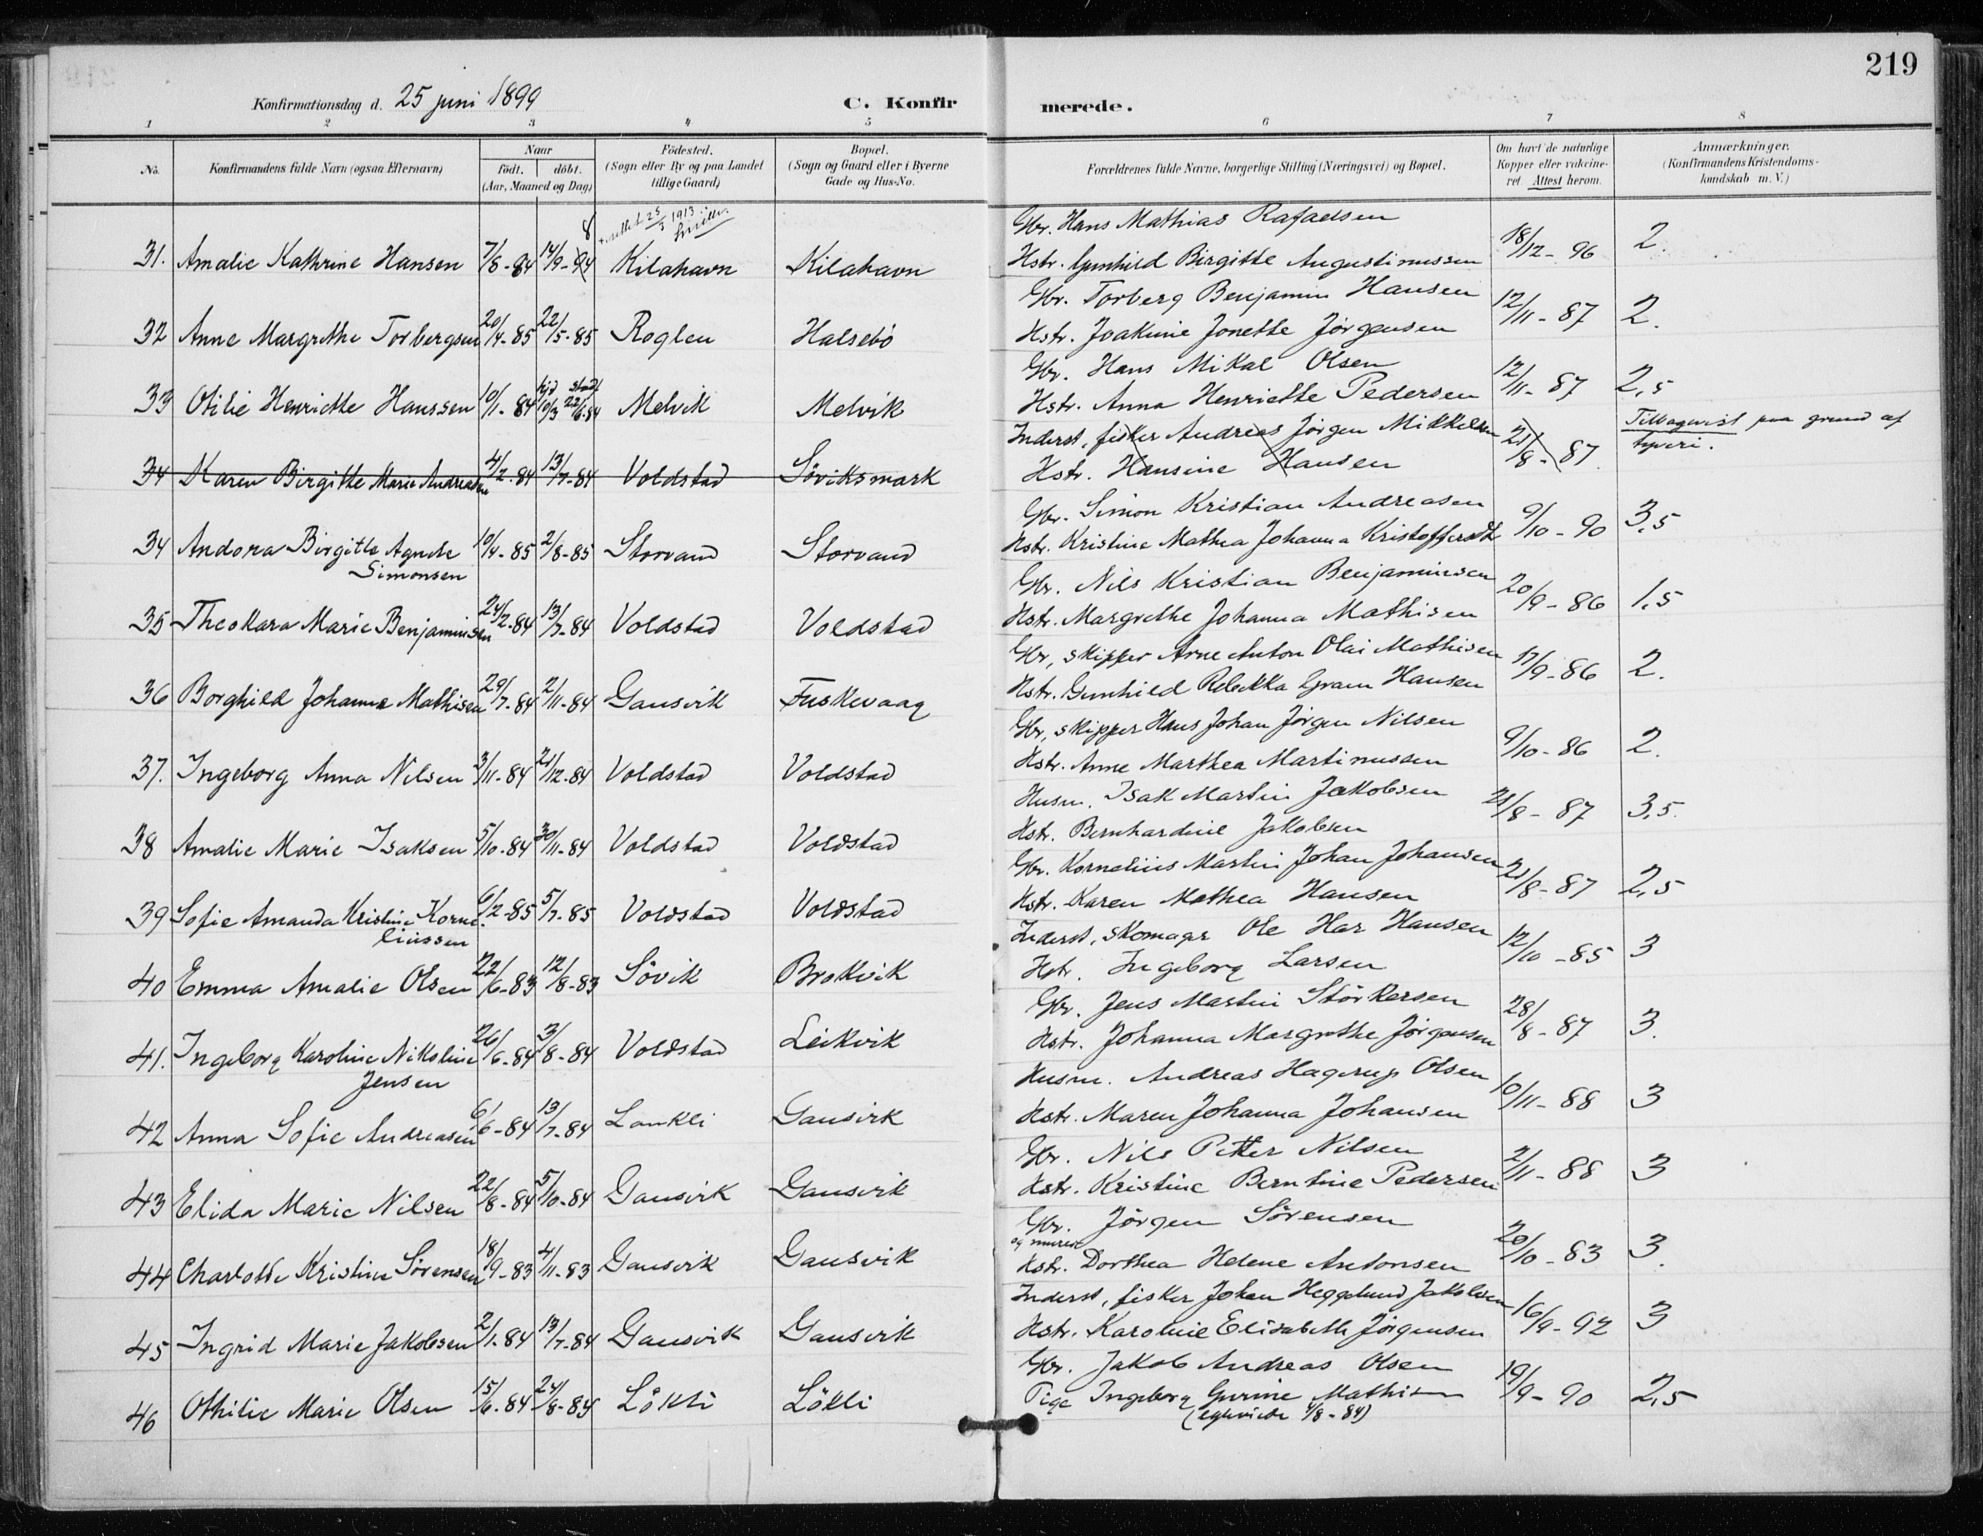 219
Konfirmationsdag d. 25 juni 1899
C. Konfir merede.
1 2 3 4 5 6 7 8
No. Konfirmandens fulde Navn (ogsaa Efternavn) Naar født. døbt. (Aar, Maaned og Dag) Fødested. (Sogn eller By og paa Landet tillige Gaard) Bopæl. (Sogn og Gaard eller i Byerne Gade og Hus-No. Forældrenes fulde Navne, borgerlige Stilling (Næringsvei) og Bopæl. Om havt de naturlige Kopper eller vakcineret. Attest herom. Anmærkninger. (Konfirmandens Kristendomskundskab m. V.)
8 rettet 25/3 1913
31. Amalie Kathrine Hansen 7/8-84 14/9-94 Kilahavn Kilahavn Gbr. Hans Mathias Rafaelsen 18/12-96 2.
Hstr. Gunhild Birgitte Augustinussen
32 Anne Margrethe Torbergsen 20/4-85 22/5-85 Roglen Halsebö Gbr. Torberg Benjamin Hansen 12/11-87 2.
Hstr. Joakime Jonette Jørgensen
33 Otilie Henriette Hanssen 10/1-84 hjd 10/3 stadf 22/6-84 Melvik Melvik Gbr. Hans Mikal Olsen 12/11-87 2,5
Hstr. Anna Henriette Pedersen
34 Karen Birgitte Marie Andreasen 4/2-84 13/7-84 Voldstad Söviksmark Inderst, fisker Andreas Jörgen Mikkelsen 21/8-87 Tilbagevist paa grund af tyveri.
Hstr. Hansine Hansen
34 Andora Birgitte Agnete Simonsen 10/4-85 2/8-85 Storvand Storvand Gbr. Simon Kristian Andreasen 9/10-90 3,5
Hstr. Kristine Mathea Johanna Kristoffersdt
35 Theokara Marie Benjaminsen 24/2-84 13/7-84 Voldstad Voldstad Gbr. Nils Kristian Benjaminsen 20/9-86 1,5
Hstr. Margrethe Johanna Mathisen
36 Borghild Johanna Mathisen 29/7-84 2/11-84 Gansvik Fuskevaag Gbr, skipper Arne Anton Olai Mathisen 17/9-86 2.
Hstr. Gunhild Rebekka Gram Hansen
37. Ingeborg Anna Nilsen 3/11-84 21/12-84 Voldstad Voldstad Gbr, skipper Hans Johan Jörgen Nilsen 9/10-86 2.
Hstr. Anne Marthea Martinussen
38 Amalie Marie Isaksen 5/10-84 30/11-84 Voldstad Voldstad Husm. Isak Martin Jakobsen 21/8-87 3,5.
Hstr. Bernhardine Jakobsen
39 Sofie Amanda Kristine Korneliussen 6/2-85 5/7-85 Voldstad Voldstad Gbr. Kornelius Martin Johan Johansen 21/8-87 2,5
Hstr. Karen Mathea Hansen
40 Emma Amalie Olsen 22/6-83 12/8-83 Sövik Brokvik Inderst, skomager Ole Har Hansen 12/10-85 3
Hstr. Ingeborg Larsen
41. Ingeborg Karoline Nikoline Jensen 26/6-84 3/8-84 Voldstad Leikvik Gbr. Jens Martin Störkersen 28/8-87 3.
Hstr. Johanna Margrethe Jørgensen
42 Anna Sofie Andreasen 6/6-84 13/7-84 Lankli Gansvik Husm. Andreas Hagerup Olsen 10/11-88 3
Hstr. Maren Johanna Johansen
43 Elida Marie Nilsen 22/8-84 5/10-84 Gansvik Gansvik Gbr. Nils Petter Nilsen 2/11-88 3
Hstr. Kristine Berntine Pedersen
44 Charlotte Kristine Sörensen 18/9-83 4/11-83 Gansvik Gansvik Gbr. og murer Jörgen Sörensen 20/10-83 3.
Hstr. Dorthea Helene Antonsen
45 Ingrid Marie Jakobsen 2/1-84 13/7-84 Gansvik Gansvik Inderst, fisker Johan Heggelund Jakobsen 16/9-92 3
Hstr. Karoline Elisabeth Jörgensen
46 Othilie Marie Olsen 15/6-84 24/8-84 Lökli Lökli Gbr. Jakob Andreas Olsen 19/9-90 2,5
Pige Ingeborg Gurine Mathisen
(egteviede 1/8-84)